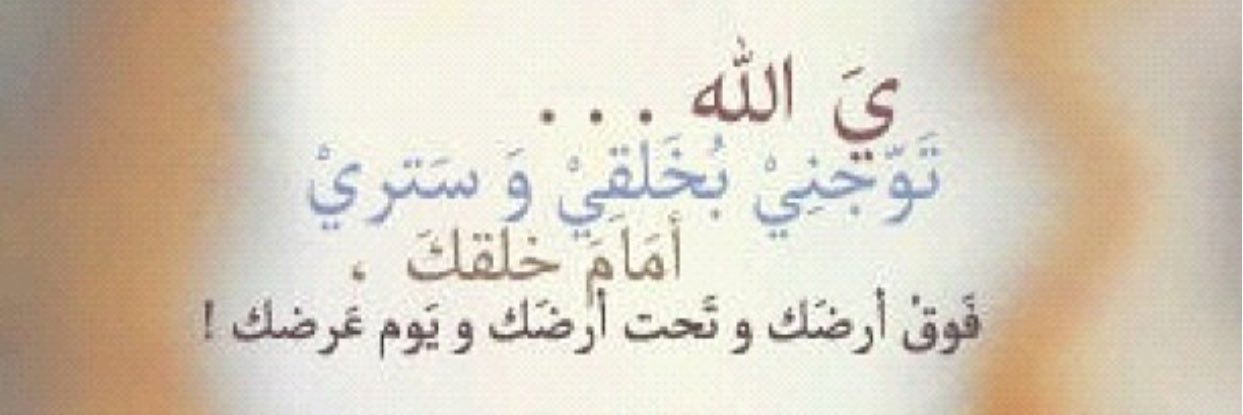 يَ الله . . .
تَوّجنِيْ بُخَلْقِيْ وَ سَتريْ
أمَامَ خلقكَ .
فَوقْ أرضَك و تَحت أرضَك و يَوم عَرضك !